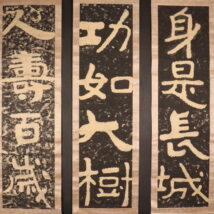 身是長城
功如大樹
人壽百歲